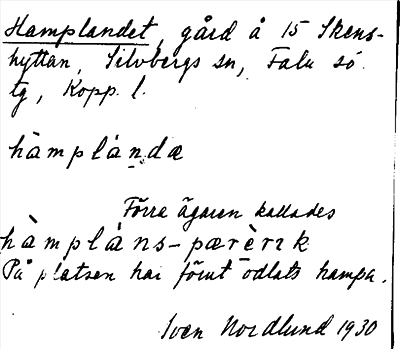 Hamplandet, gård å 15 Skens-
hyttan, Silvbergs sn, Falu sö.
tg, Kopp. l.
hàmplándæ
Förre ägaren kallades
hàmplàns-pærèrɪk
På platsen har förut odlats hampa.
Sven Nordlund 1930